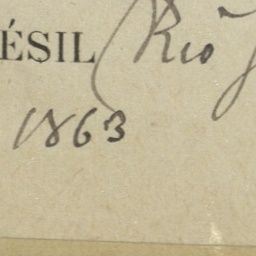 ÉSIL (Rio J
1863